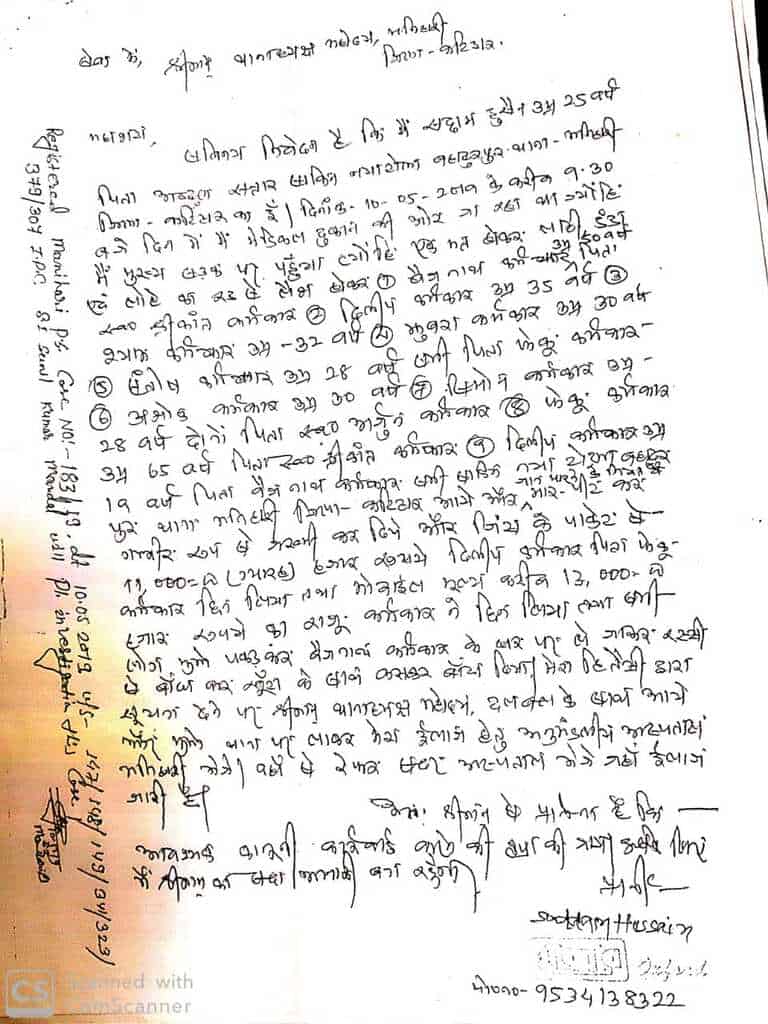 सेवा में,
श्रीमान् थानाध्यक्ष महोदय, मनिहारी
जिला - कटिहार.
महाशय,
सविनय निवेदन है कि मैं सद्दाम हुसैन उम्र 25 वर्ष
पिता अब्दुल सत्तार साकिन नयाटोला बहादुरपुर थाना - मनिहारी
जिला - कटिहार का हूँ। दिनांक - 10-05-2019 के करीब 9.30
बजे दिन में मैं मेडिकल दुकान की ओर जा रहा था ज्योंहि
मैं मुख्य सड़क पर पहुँचा त्योंहि एक मत होकर लाठी डंडा
लोहे का रड से लैश होकर ① बैजनाथ कर्मकार उम्र 60 वर्ष पिता
स्व० श्रीकांत कर्मकार ② दिलीप कर्मकार उम्र 35 वर्ष ③
श्याम कर्मकार उम्र - 32 वर्ष ④ कर्मकार उम्र 30 वर्ष
⑤ संतोष कर्मकार उम्र 28 वर्ष सभी पिता फेकू कर्मकार -
⑥ अशोक कर्मकार उम्र 30 वर्ष ⑦ कर्मकार उम्र -
28 वर्ष दोनों पिता स्व० अर्जुन कर्मकार ⑧ फेकू कर्मकार
उम्र 65 वर्ष पिता स्व० श्रीकांत कर्मकार ⑨ दिलीप कर्मकार उम्र
19 वर्ष पिता बैजनाथ कर्मकार सभी साकिन नया टोला बहादुर
पुर थाना मनिहारी जिला - कटिहार आये और जान मारने के नियत से मार-पीट कर
गम्भीर रूप से जख्मी कर दिये और जिंस के पाकेट से
11,000= (ग्यारह) हजार रूपये दिलीप कर्मकार पिता फेकू
कर्मकार छिन लिया तथा मोबाईल मूल्य करीब 13,000=
हजार रूपये का राजू कर्मकार ने छिन लिया तथा सभी
लोग मुझे पकड़कर बैजनाथ कर्मकार के घर पर ले जाकर रस्सी
से बाँध कर खूँटा के साथ कसकर बाँध दिया। मेरा हितैसी द्वारा
सूचना देने पर श्रीमान् थानाध्यक्ष महोदय, दलबल के साथ आये
मुझे थाना पर लाकर मेरा ईलाज हेतु अनुमंडलीय अस्पताल
मनिहारी भेजे। वहाँ से रेफर सदर अस्पताल भेजे जहाँ ईलाज
जारी है।
अतः श्रीमान् से प्रार्थना है कि —
आवश्यक कानूनी कार्रवाई करने की कृपा की जाय इसके लिए
मैं श्रीमान् का सदा आभारी बना रहूँगा
प्रार्थी —
Saddam Hussain
मो०न०- 9534138322
Registered Manihari P.S. Case No:- 183/19. dt 10.05.2019 u/s- 147/148/149/341/323/
379/307 I.P.C. S.I Sunil Kumar Mandal will Pl. investigate this case.
CS Scanned with
CamScanner